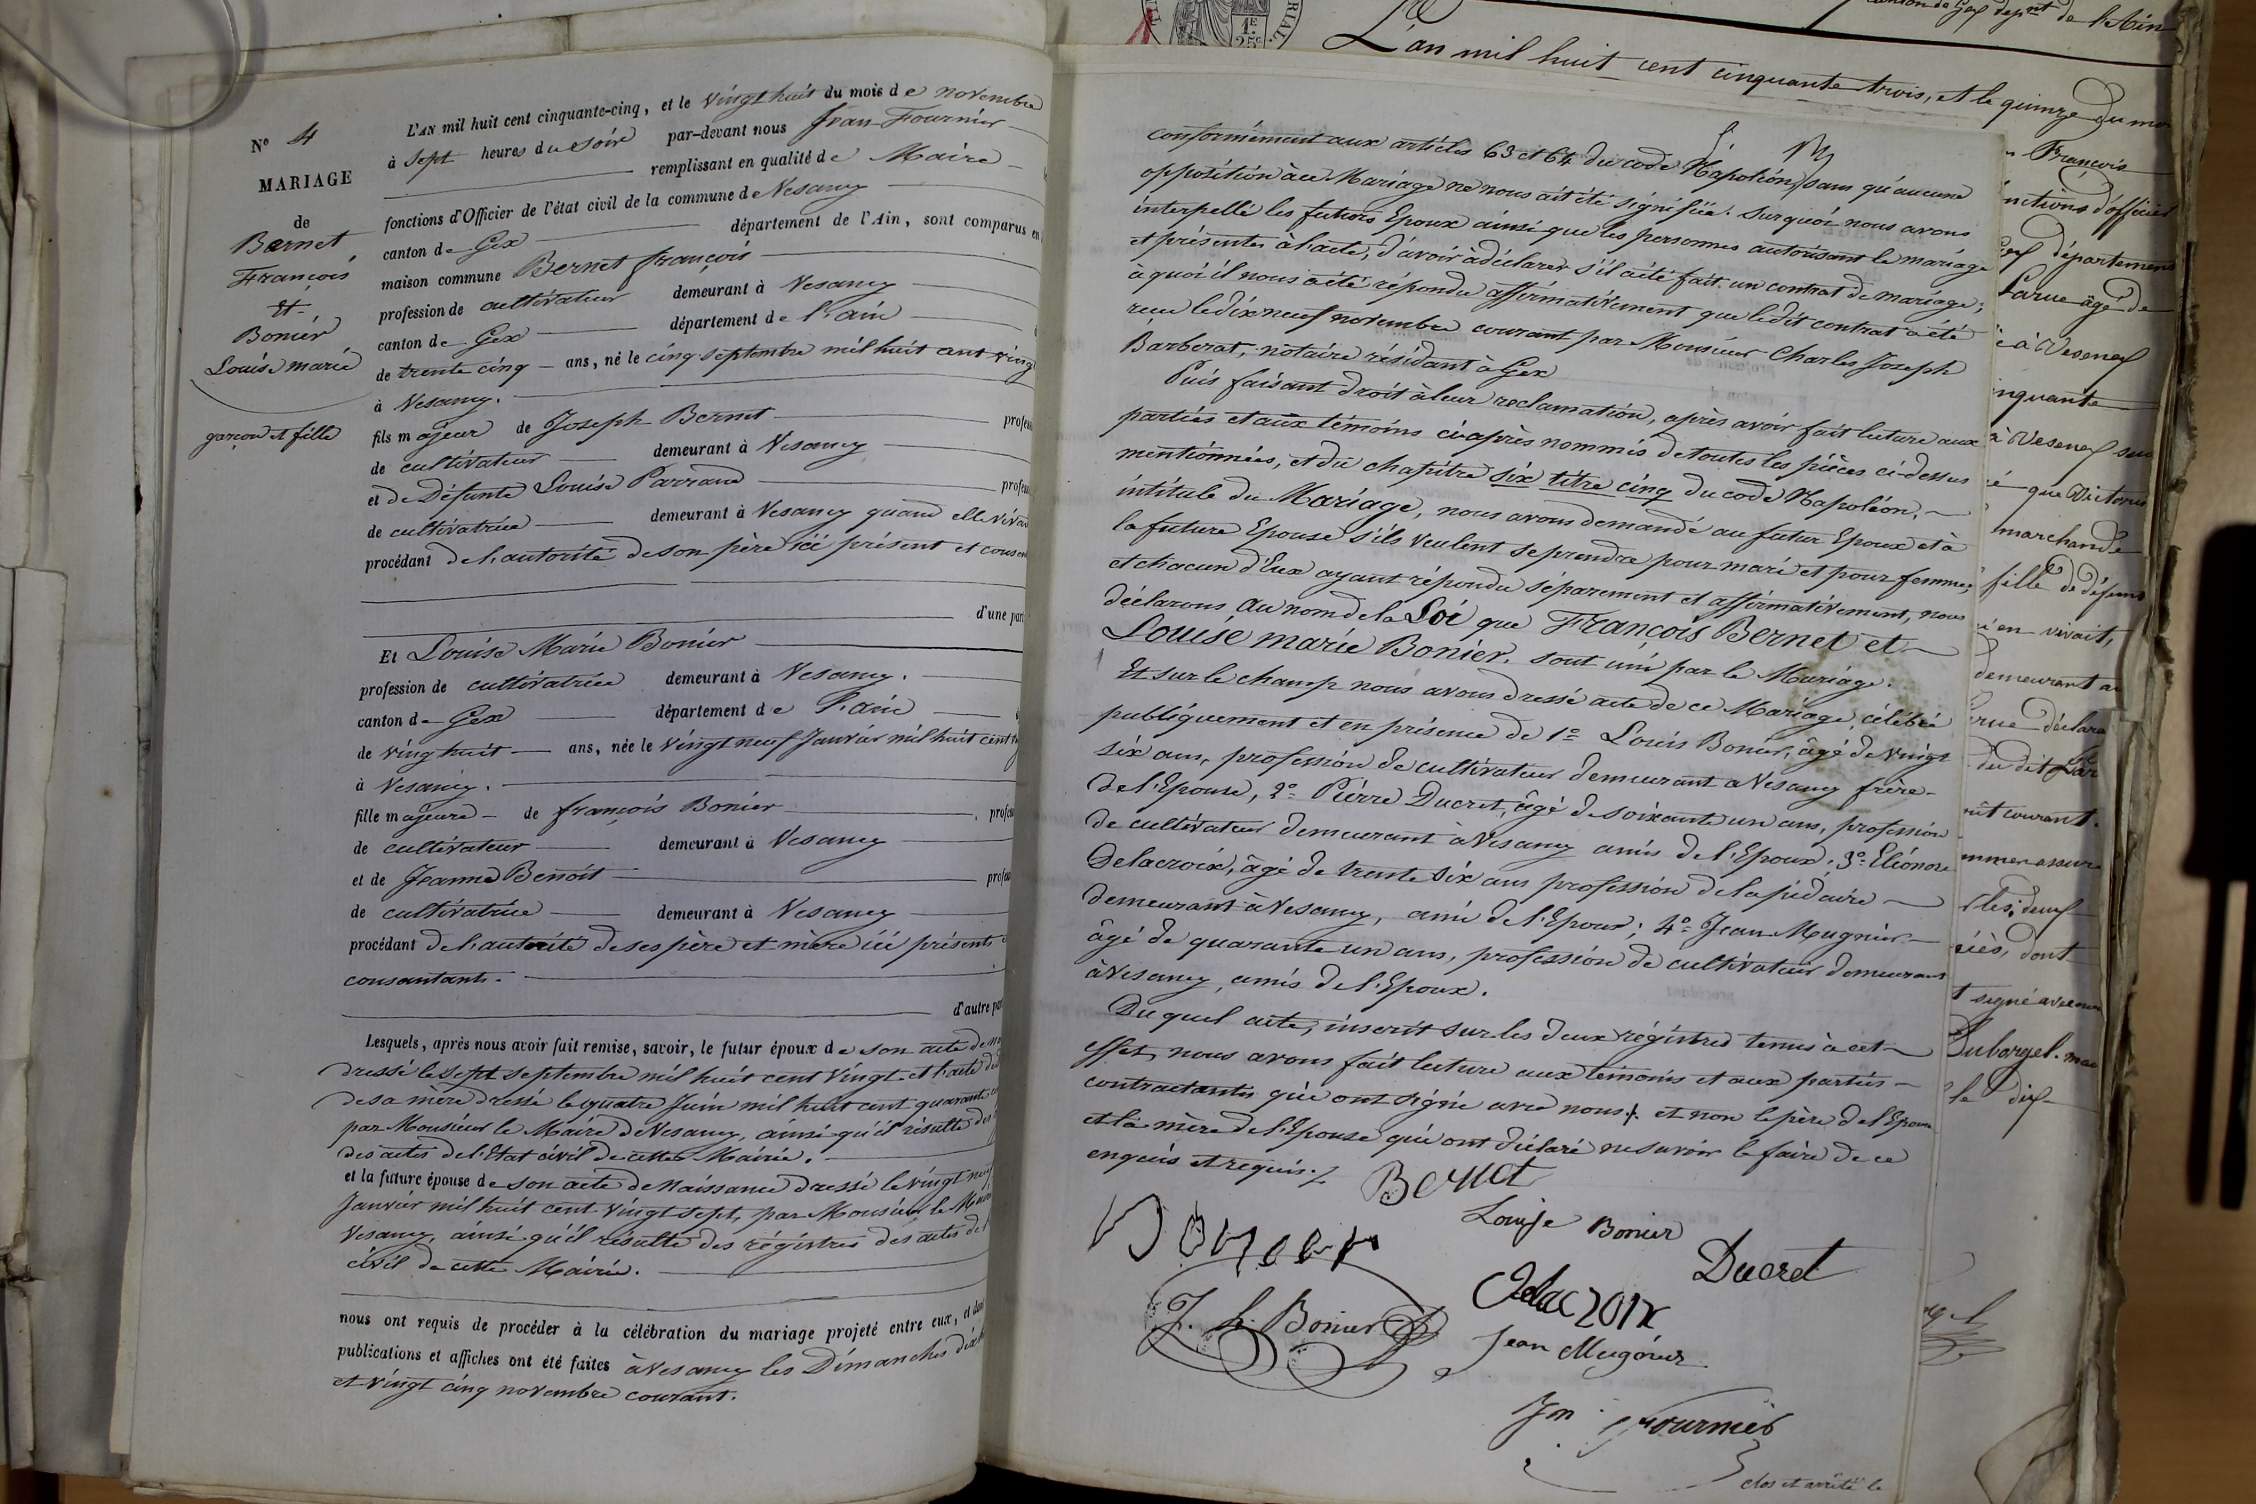 N° 4
MARIAGE
de
Bernet
François
Et
Bonier
Louise marie
garçon et fille
L'AN mil huit cent cinquante-cinq, et le vingt huit du mois de novembre
à sept heures du soir par-devant nous Jean Fournier
remplissant en qualité de Maire
fonctions d'Officier de l'état civil de la commune de Vesancy
canton de Gex département de l'Ain, sont comparus en
maison commune Bernet françois
profession de cultivateur demeurant à Vesancy
canton de Gex département de l'ain
de trente cinq ans, né le cinq septembre mil huit cent ving
à Vesancy.
fils majeur de Joseph Bernet profes
de cultivateur demeurant à Vesancy
et de Défunte Louise Parraud profes
de cultivatrice demeurant à Vesancy quand elle viva
procédant de l'autorité de son père ici présent et consen
d'une part
Et Louise Marie Bonier
profession de cultivatrice demeurant à Vesancy.
canton de Gex département de l'ain
de vingt huit ans, née le vingt neuf Janvier mil huit cent
à Vesancy.
fille majeure de françois Bonier profes
de cultivateur demeurant à Vesancy
et de Jeanne Benoit profes
de cultivatrice demeurant à Vesancy
procédant de l'autorité de ses père et mère ici présents
consantants.
d'autre par
Lesquels, après nous avoir fait remise, savoir, le futur époux de son acte de
dressé le sept septembre mil huit cent vingt et l'acte de
de sa mère dressé le quatre Juin mil huit cent quarante
par Monsieur le Maire de Vesancy, ainsi qu'il résulte des
des actes de l'Etat civil de cette Mairie.
et la future épouse de son acte de Naissance dressé le vingt neuf
Janvier mil huit cent vingt sept, par Monsieur le Maire
Vesancy, ainsi qu'il résulte des régistres des actes de l
civil de cette Mairie.
nous ont requis de procéder à la célébration du mariage projeté entre eux, et dont
publications et affiches ont été faites à Vesancy les Dimanches dix
et vingt cinq novembre courant.
conformément aux articles 63 et 64 du code Napoléon, sans qu'aucune
opposition à ce Mariage ne nous ait été signifiée. Sur quoi nous avons
interpellé les futurs Epoux ainsi que les personnes autorisant le mariage
et présentes à l'acte, d'avoir à déclarer s'il a été fait un contrat de mariage;
à quoi il nous a été répondu affirmativement que le dit contrat a été
reçu le dix neuf novembre courant par Monsieur Charles Joseph
Barberat, notaire résidant à Gex
Puis faisant droit à leur reclamation, après avoir fait lecture aux
parties et aux témoins ci-après nommés de toutes les pièces ci-dessus
mentionnées, et du chapitre six titre cinq du code Napoléon,
intitulé du Mariage, nous avons demandé au futur Epoux et à
la future Epouse s'ils veulent se prendre pour mari et pour femme;
et chacun d'Eux ayant répondu séparement et affirmativement, nous
déclarons au nom de la Loi que François Bernet et
Louise marie Bonier, sont uni par le Mariage.
Et sur le champ nous avons dressé acte de ce Mariage, célébré
publiquement et en présence de 1° Louis Bonier, âgé de vingt
six ans, profession de cultivateur demeurant à Vesancy frère
de l'Epouse, 2° Pierre Ducret, âgé de soixante un ans, profession
de cultivateur demeurant à Vesancy amis de l'Epoux; 3° Eléonore
Delacroix, âgé de trente six ans profession de lapidaire
demeurant à Vesancy, ami de l'Epoux; 4° Jean Mugnier
âgé de quarante un ans, profession de cultivateur demeurant
à Vesancy, amis de l'Epoux.
Du quel acte, inscrit sur les deux régistres tenus à cet
effet, nous avons fait lecture aux témoins et aux parties
contractantes qui ont signé avec nous; et non le père de l'Epoux
et la mère de l'Epouse qui ont déclaré ne savoir le faire de ce
enquis et requis.
Bernet
Louise Bonier
Bonier
Ducret
Delacroix
J. L. Bonier
Jean Mugnier
Jn Fournier
clos et arrêté le
canton de Gex depnt de l'Ain
L'an mil huit cent cinquante trois, et le quinze du mo
François
nctions d'officier
département
Larue âgé de
à Vesenex
nquante
à Vesenex
que Victorine
marchande
fille de défunt
en vivait,
demeurant a
rue déclare
du dit Lar
courant.
dont
signé avec nous
Duborgel. mai
le dix